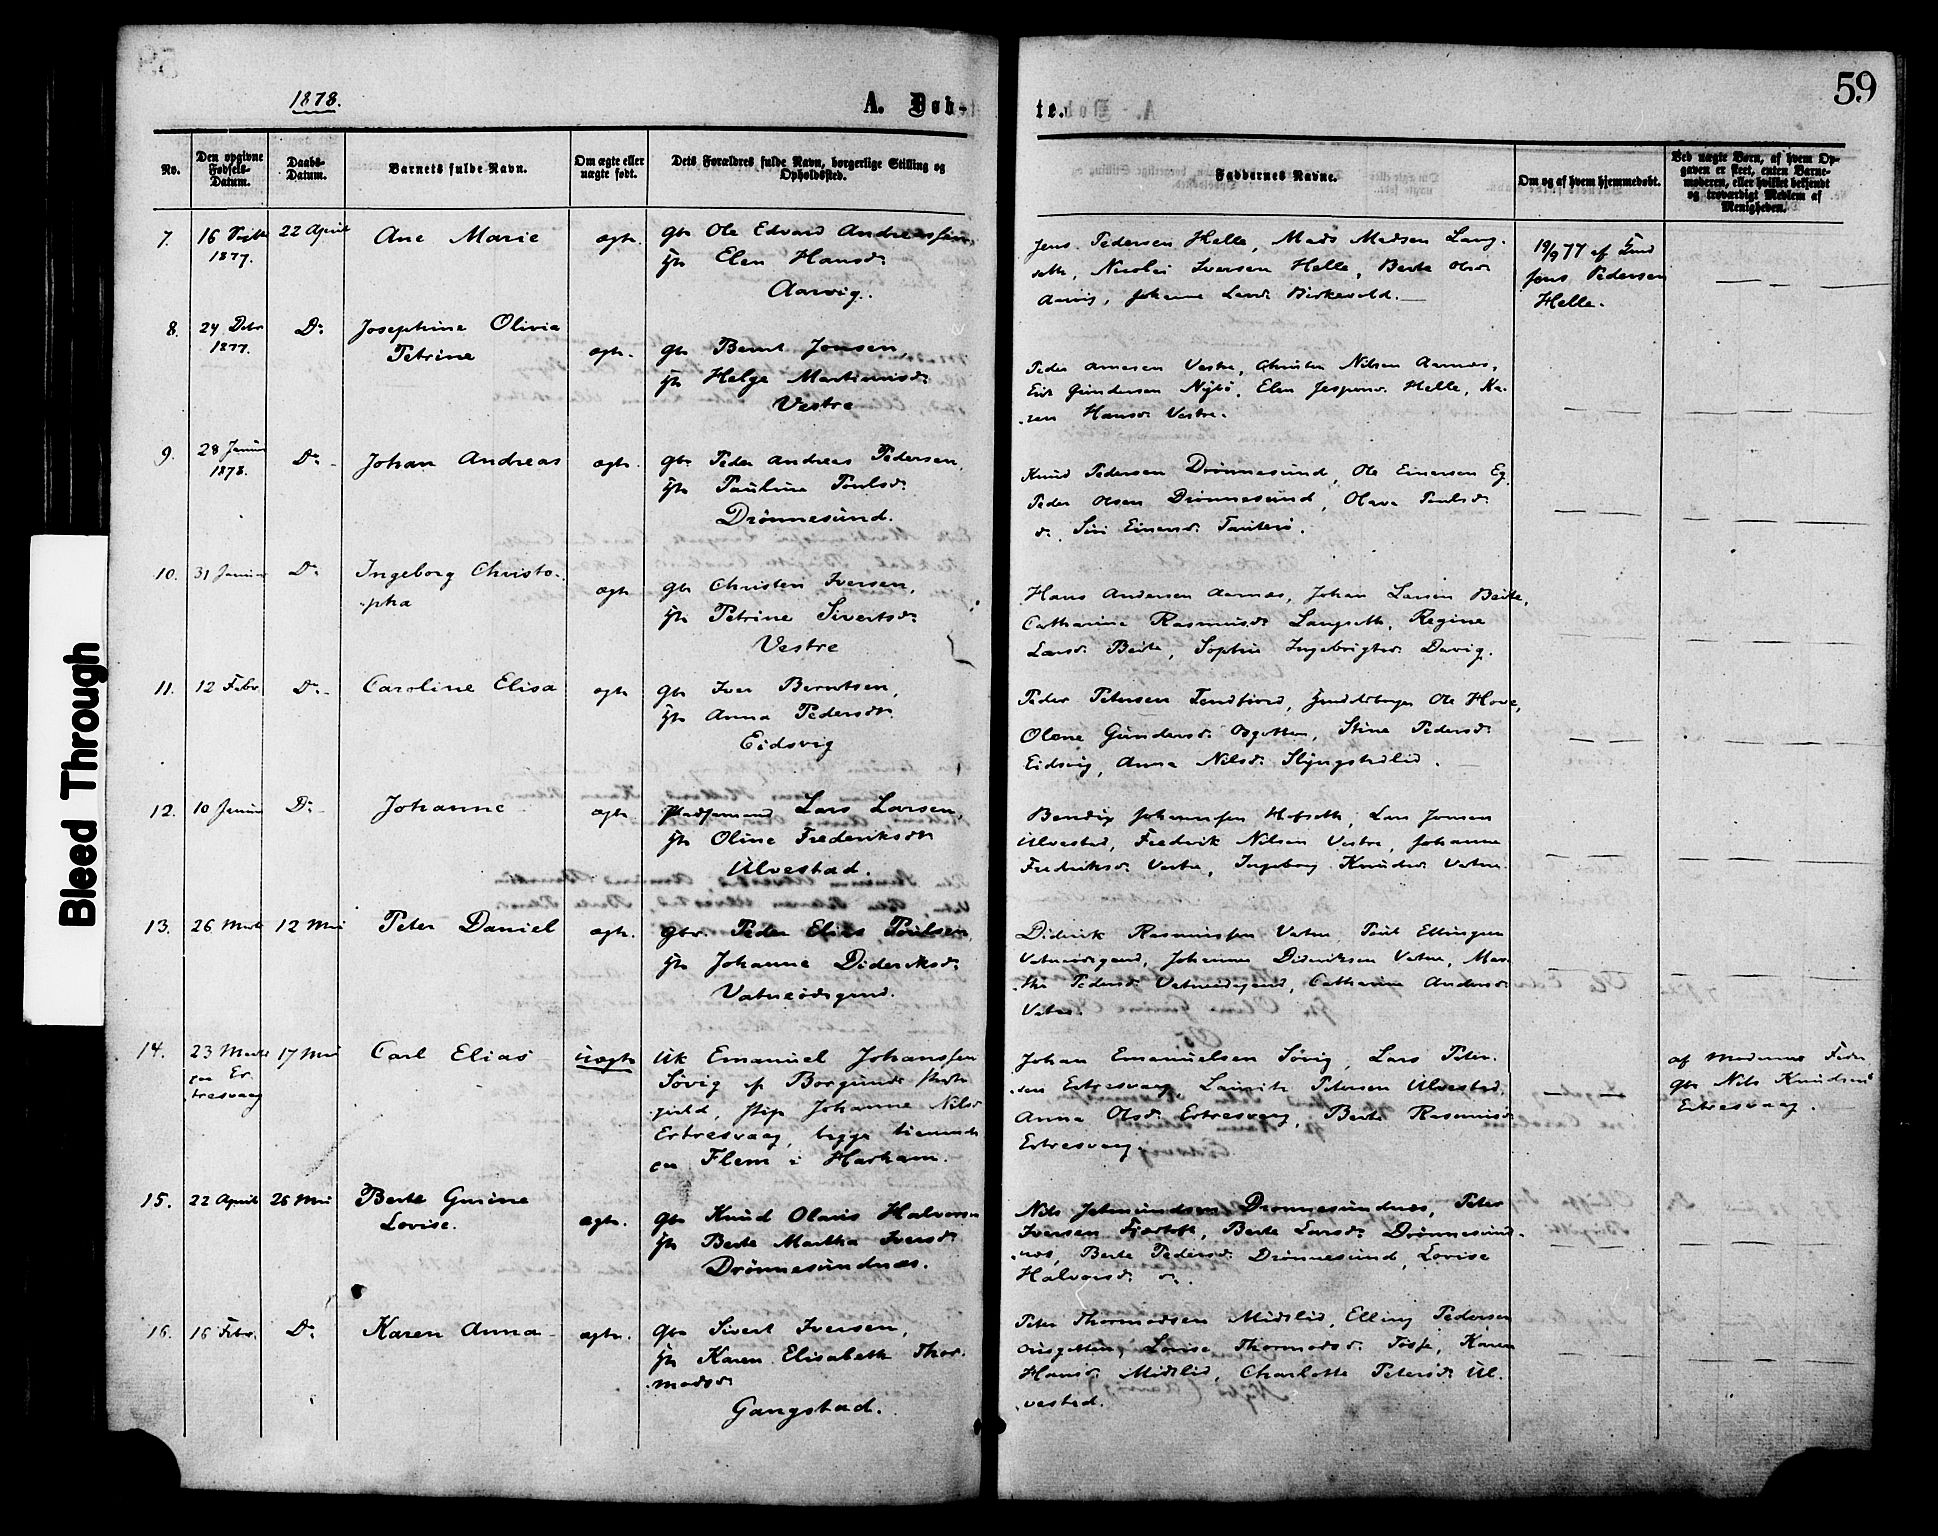 1878.
A. Døb-
te.
59
Bleed Through
No.
Den opgivne
Fødsels-
Datum.
Daabs-
Datum.
Barnets fulde Navn.
Om ægte eller
uægte født.
Dets Forældres fulde Navn, borgerlige Stilling og
Opholdssted.
Faddernes Navne.
Om og af hvem hjemmedøbt.
Ved uægte Børn, af hvem Op-
gaven er skeet, enten Barne-
moderen, eller hvilket bekjendt
og troværdigt Medlem af
Menigheden.
7.
16
1877.
22 April
Ane Marie
ægte
Gbr Ole Edvard Andreassen,
Elen Hansdr
Aarvig.
Jens Pedersen Helle, Mads Madsen Lang-
seth, Nicolai Iversen Helle, Berte Olsdr
Aarvig, Johanne Larsdr Birkevold.
19/9 77 af
Jens Pedersen
Helle.
8.
24
1877.
Do
Josephine Olivia
Petrine
ægte.
Gbr Bernt Jonsen,
Helga Martinusdr
Vestre
Peder Arnesen Vestre, Christen Nilsen Aarnes,
Gundersen Nybø, Elen Jespersdr Helle, Ka-
ren Hansdr Vestre.
9.
28 Januar
1878.
Do
Johan Andreas
ægte.
Gbr Peder Andreas Pedersen,
Pauline Poulsdr
Drønnesund.
Knud Pedersen Drønnesund, Ole Einersen
Peder Olsen Drønnesund, Olava Poulsdr
do, Siri Einersdr
10.
31 Januar
Do
Ingeborg Christo-
pha
ægte
Gbr Christen Iversen,
Petrine Sivertsdr
Vestre
Hans Andersen Aarnes, Johan Larsen Beite,
Catharine Rasmusdr Langseth, Regine
Larsdr Beite, Sophie Ingebrigtsdr
11.
12 Febr
Do
Caroline Elisa
ægte
Gbr Iver Berntsen,
Anna Pedersdtr
Eidsvig
Peder Petersen Tendfjord, Ole Hove,
Olene Gundersdr Stine Pedersdr
Eidsvig, Anna Nilsdr
12.
10 Januar
Do
Johanne
ægte.
Pladsemand Lars Larsen,
Oline Frederiksdtr
Ulvestad.
Bendix Johannssen Hofseth, Lars Jonsen
Ulvestad, Fredrik Nilsen Vestre, Johanne
Fredriksdr Vestre, Ingeborg Knudsdr Vatne
13.
26 Marts
12 Mai
Peter Daniel
ægte.
Gbr. Peder Elias Poulsen,
Johanne Dideriksdr
Vatneødegaard.
Diderik Rasmussen Vatne, Poul Ellingsen
Vatneødegaard, Johannes Dideriksen Vatne, Mar-
the Pedersdr Vatneødegaard, Catharine Andersdr
Vatne.
14.
23 Marts
paa Er-
tresvaag
17 Mai
Carl Elias
uægte
Uk Emanuel Johanssen
Søvig af Borgunds Præste-
gjeld, pige Johanne Nilsdr
Ertresvaag, begge tienende
paa Flem i Harham.
Johan Emanuelsen Søvig, Lars Peter-
sen Ertresvaag, Lauritz Petersen Ulvestad,
Anna Olsdr Ertresvaag, Berte Rasmusdr
Ertresvaag.
af Moderens Fader
Gbr Nils Knudsen
Ertresvaag.
15.
22 April
26 Mai
Berte Gurine
Lovise.
ægte.
Gbr Knud Olaus Halvorsen
Berte Martha Iversdr
Drønnesundnæs.
Nils Jetmundsen Drønnesundnæs, Peter
Iversen Fjørtoft, Berte Larsdr Drønnesund-
næs, Berte Pedersdr Drønnesund, Lovise
Halvorsdr do.
16.
16 Febr.
Do
Karen Anna
ægte.
Gbr Sivert Iversen,
Karen Elisabeth Thor-
modsdr
Gangstad.
Peter Thormodsen Midtlid, Elling Pedersen
Lovise Thormodsdr Karen
Hansdr Midtlid, Charlotte Petersdr Ul-
vestad.